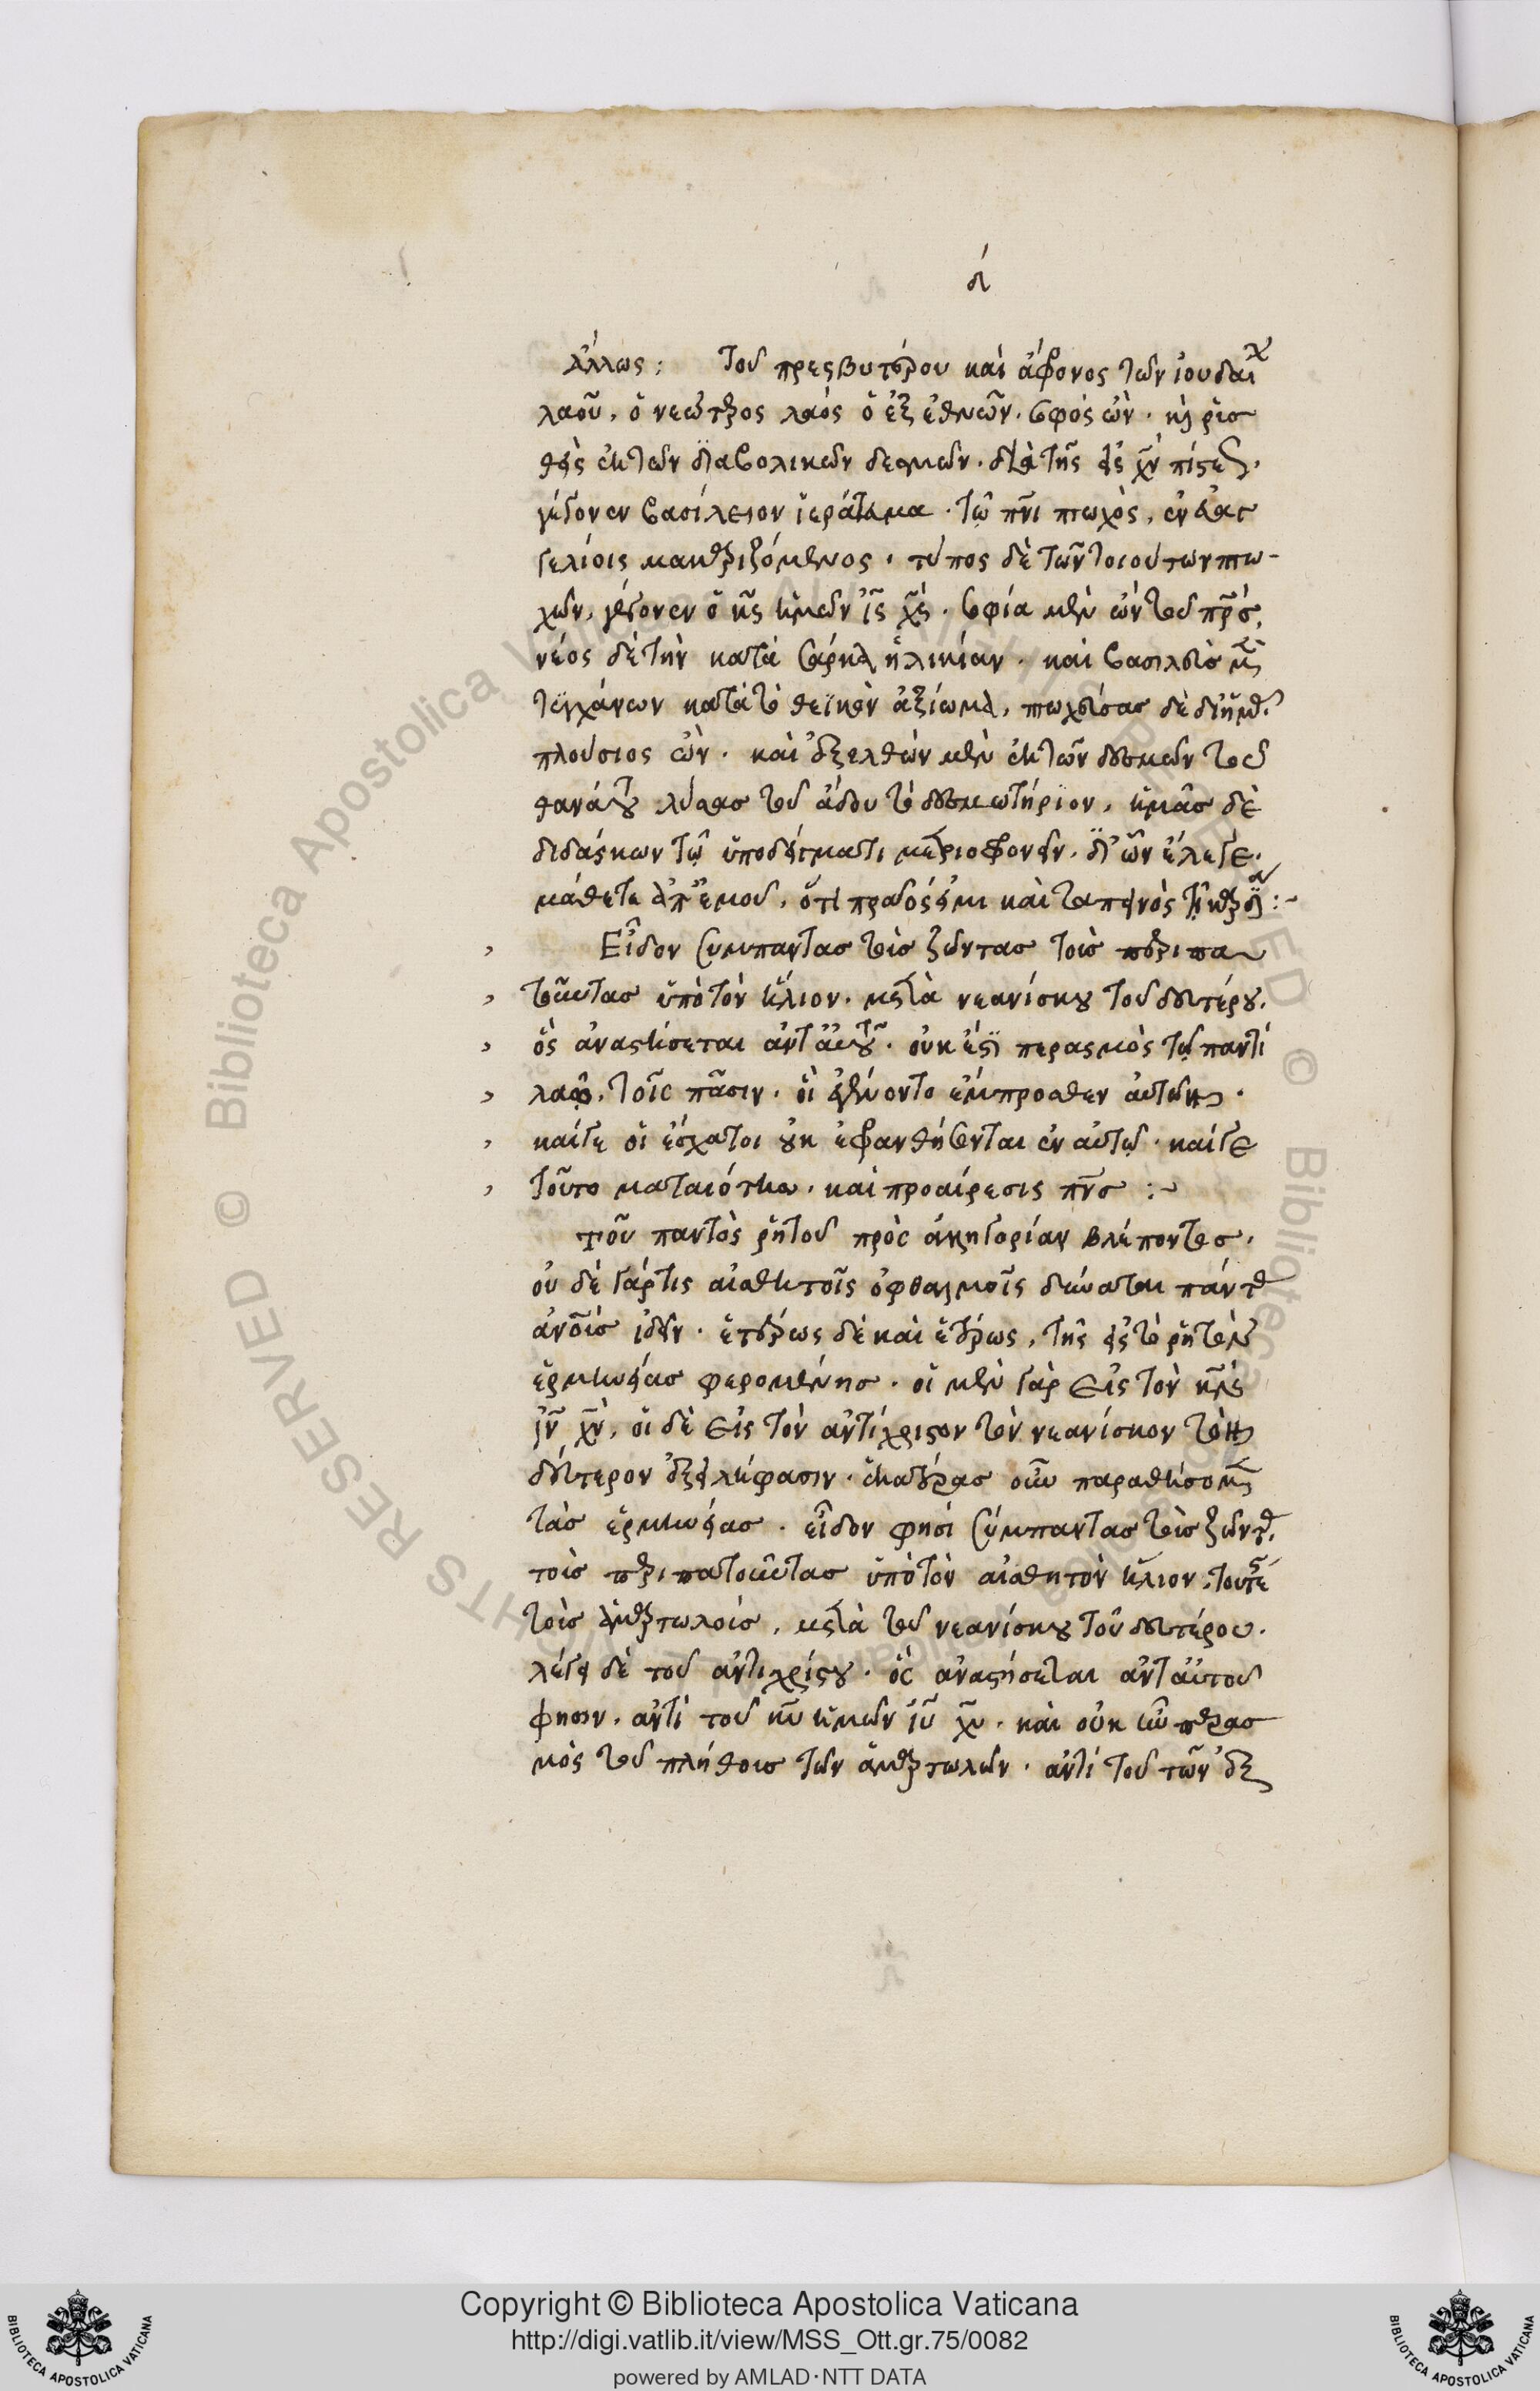 δ´
ἄλλως : Τοῦ πρεσβυτέρου καὶ ἄφρονος τῶν ἰουδαϊκ
λαοῦ, ὁ νεώτερος λαὸς ὁ ἐξ ἐθνῶν. σοφὸς ὢν. καὶ ῥυσ
θεὶς ἐκ τῶν διαβολικῶν δεσμῶν. διὰ τῆς εἰς χν πίστεως.
γέγονεν βασίλειον ἱεράτευμα. τῷ πνι πτωχὸς, ἐν εὐαγ
γελίοις μακαριζόμενος. τύπος δὲ τῶν τοιούτων πτω-
χῶν, γέγονεν ὁ κς ἡμῶν ις χς. σοφία μὲν ὢν τοῦ πρς,
νέος δὲ τὴν κατὰ σάρκα ἡλικίαν. καὶ βασιλεὺς μὲν
τυγχάνων κατὰ τὸ θεϊκὸν ἀξίωμα, πτωχεύσας δὲ δι' ἡμᾶς
πλούσιος ὢν. καὶ ἐξελθὼν μὲν ἐκ τῶν δεσμῶν τοῦ
θανάτου λύσας τοῦ ἅδου τὸ δεσμωτήριον, ἡμᾶς δὲ
διδάσκων τῷ ὑποδείγματι μετριοφρονεῖν. δι' ὧν ἔλεγε.
μάθετε ἀπ' ἐμοῦ, ὅτι πρᾶος εἰμι καὶ ταπεινὸς τῇ καρδίᾳ :~
Εἶδον σύμπαντας τοὺς ζῶντας τοὺς περιπα
τοῦντας ὑπὸ τὸν ἥλιον. μετὰ νεανίσκου τοῦ δευτέρου.
ὃς ἀναστήσεται ἀντ' αὐτοῦ. οὐκ ἔστι περασμὸς τῷ παντὶ
λαῷ. τοῖς πᾶσιν. οἳ ἐγένοντο ἔμπροσθεν αὐτῶν.
καίγε οἱ ἔσχατοι οὐκ εὐφρανθήσονται ἐν αὐτῷ. καίγε
τοῦτο ματαιότης. καὶ προαίρεσις πνς :~
Τοῦ παντὸς ῥητοῦ πρὸς ἀλληγορίαν βλέποντος.
οὐδὲ γάρ τις αἰσθητοῖς ὀφθαλμοῖς δύναται πάντας
ἀνους ἰδεῖν. ἑτέρως δὲ καὶ ἑτέρως, τῆς εἰς τὸ ῥητὸν
ἑρμηνείας φερομένης. οἱ μὲν γὰρ εἰς τὸν κν
ιν χν, οἱ δὲ εἰς τὸν ἀντίχριστον τὸν νεανίσκον τὸν
δεύτερον ἐξειλήφασιν. ἑκατέρας οὖν παραθήσομεν
τὰς ἑρμηνείας. εἶδον φησὶ σύμπαντας τοὺς ζῶντας,
τοὺς περιπατοῦντας ὑπὸ τὸν αἰσθητὸν ἥλιον, τουτέ
τοὺς ἁμαρτωλοὺς, μετὰ τοῦ νεανίσκου τοῦ δευτέρου.
λέγει δὲ τοῦ ἀντιχρίστου. ὃς ἀναστήσεται ἀντ' αὐτοῦ
φησιν, ἀντὶ τοῦ κυ ἡμῶν ιυ χυ. καὶ οὐκ ἦν περασ
μὸς τοῦ πλήθους τῶν ἁμαρτωλῶν. ἀντὶ τοῦ τῶν ἐξ
Copyright © Biblioteca Apostolica Vaticana
http://digi.vatlib.it/view/MSS_Ott.gr.75/0082
powered by AMLAD·NTT DATA